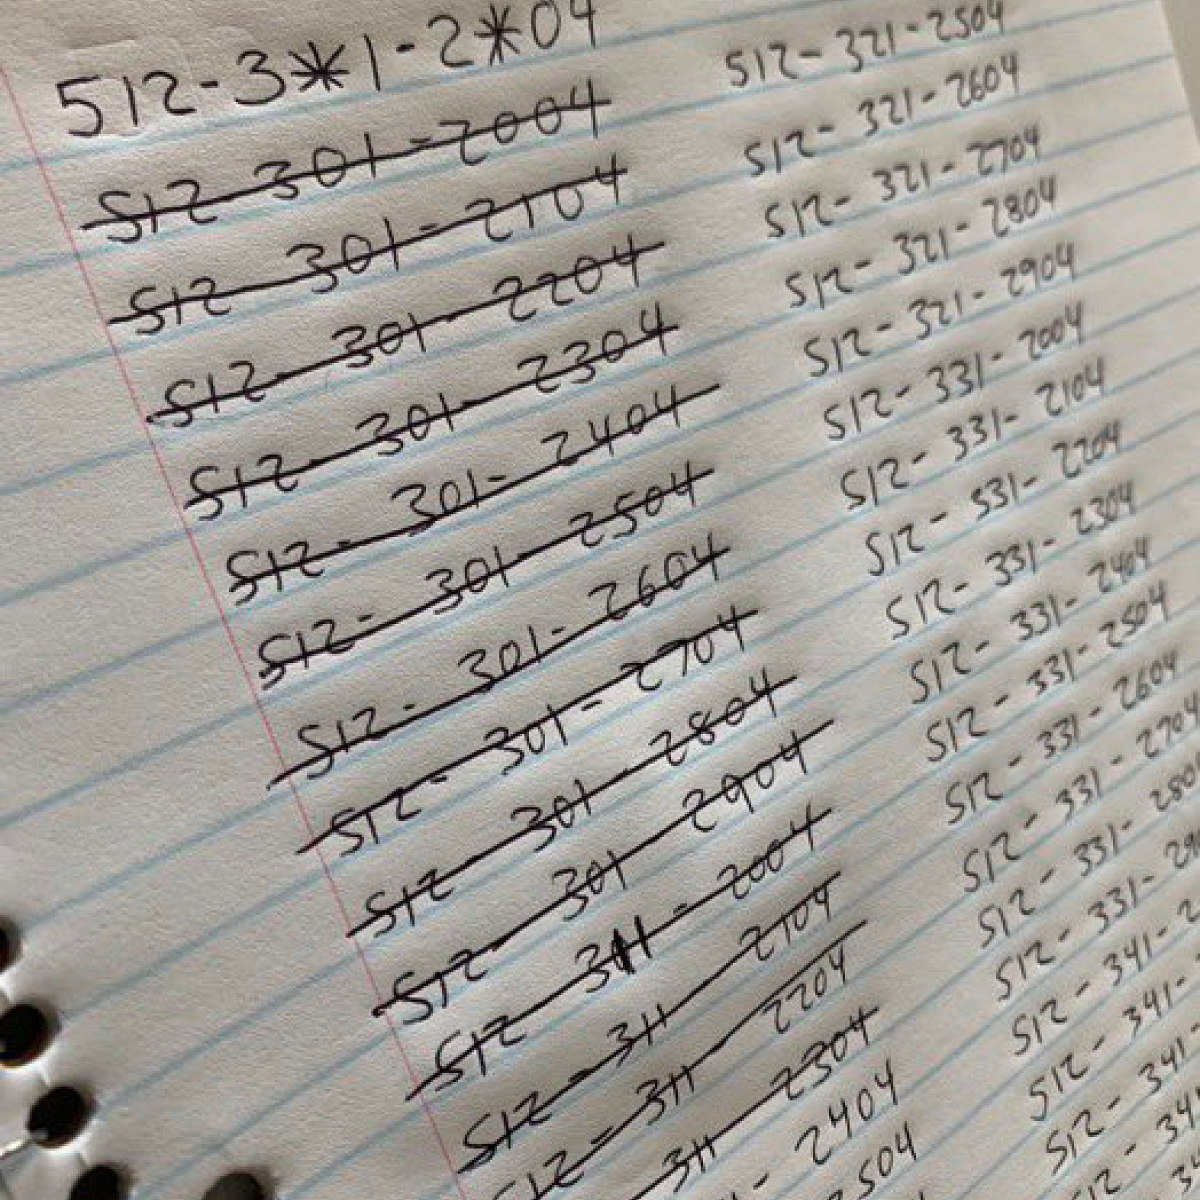 512-3*1-2*04
512-301-2004
512-301-2104
512-301-2204
512-301-2304
512-301-2404
512-301-2504
512-301-2604
512-301-2704
512-301-2804
512-301-2904
512-311-2004
512-311-2104
512-311-2204
311-2304
-2404
2504
512-321-2504
512-321-2604
512-321-2704
512-321-2804
512-321-2904
512-331-2004
512-331-2104
512-331-2204
512-331-2304
512-331-2404
512-331-2504
512-331-2604
512-331-2704
512-331-280
512-331-29
512-341-2
512-341-
512-341
512-34